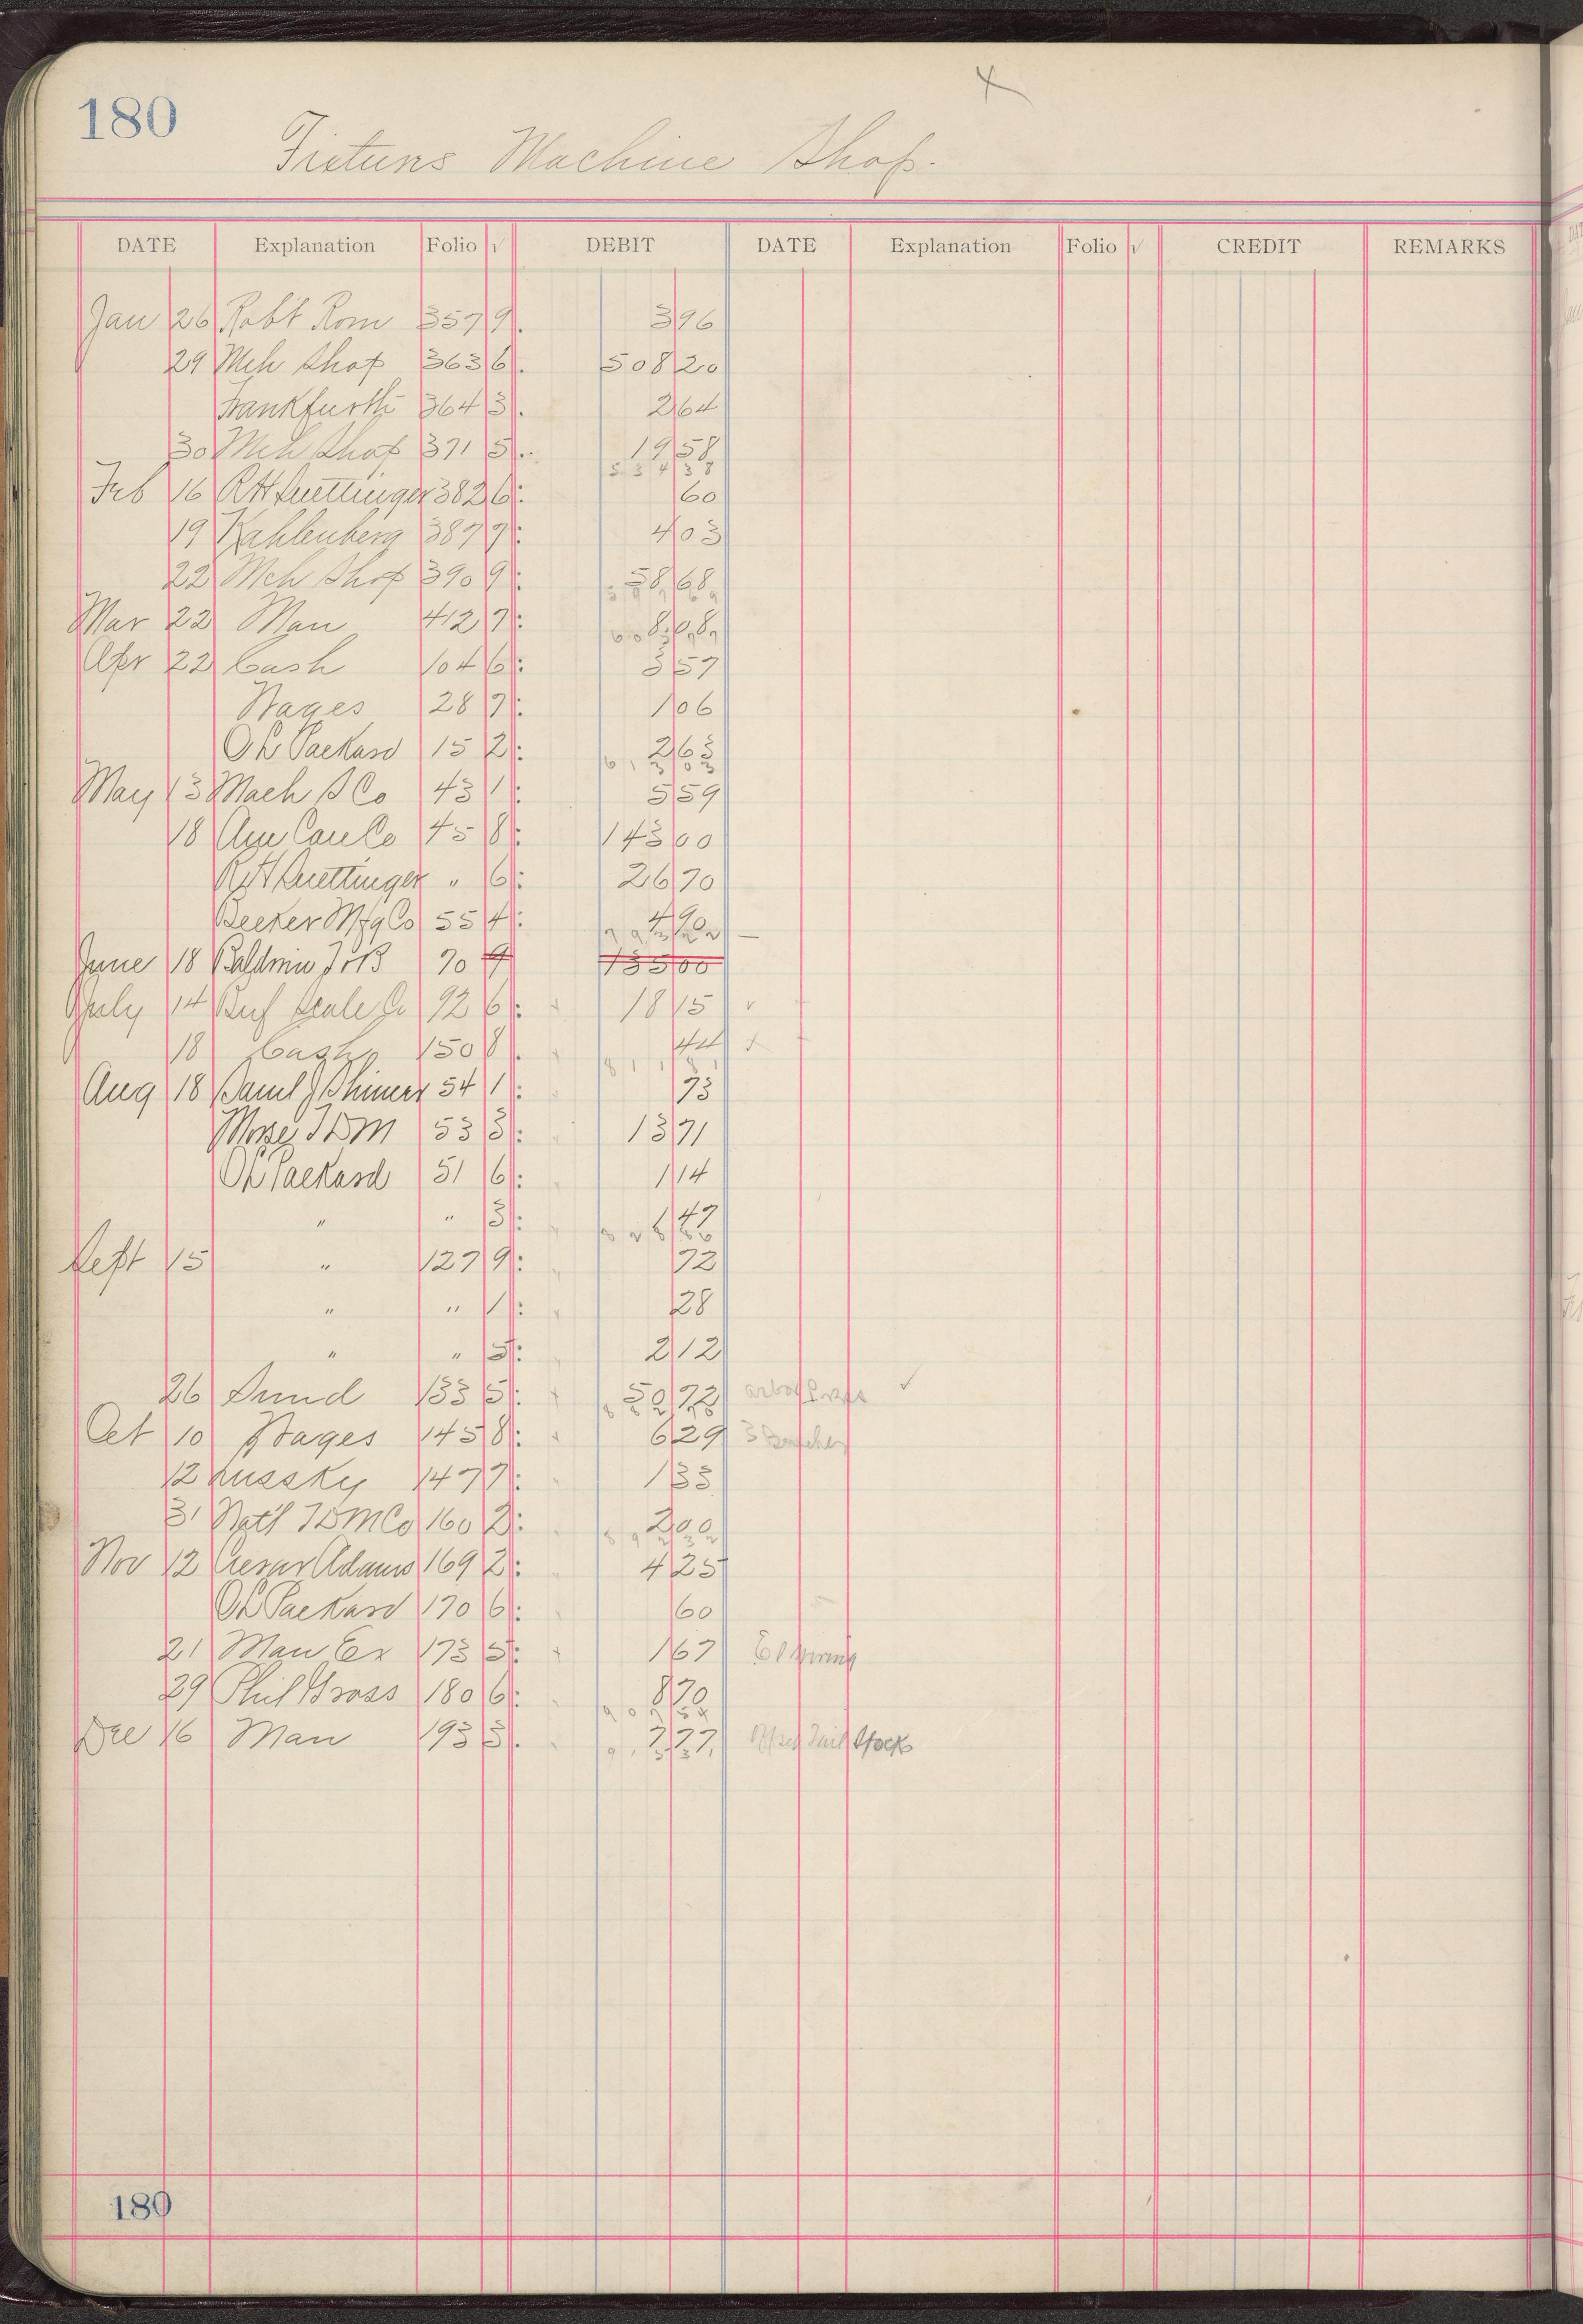 180
Fixtures Machine Shop.
DATE Explanation Folio √ DEBIT DATE Explanation Folio √ CREDIT REMARKS
Jan 26 Rob't Rom 357 9 3 96
29 Mch Shop 363 6 508 20
Frankfurth 364 3 2 64
30 Mch Shop 371 5 19 58
534 38
Feb 16 R H Luettinger 382 6 60
19 Kahlenberg 387 7 4 03
22 Mch Shop 390 9 58 68
Mar 22 Man 412 7 8 08
Apr 22 Cash 104 6 3 57
Wages 28 7 1 06
O L Packard 15 2 2 63
613 03
May 13 Mach S Co 43 1 5 59
18 Am Can Co 45 8 143 00
R H Luettinger " 6 26 70
Becker Mfg Co 55 4 4 90
June 18 Baldwin T & B 70 9 135 00
July 14 Buf Scale Co 92 6 18 15
18 Cash 150 8 44
811 81
Aug 18 Saml J Shimer 54 1 73
Morse T D M 53 3 13 71
O L Packard 51 6 1 14
" " 3 47
Sept 15 " 127 9 72
" " 1 28
" " 5 2 12
26 Sund 133 5 50 72 arbor Press ✓
Oct 10 Wages 145 8 6 29 3 Benches
12 Lussky 147 7 1 33
31 Nat'l T D M Co 160 2 2 00
Nov 12 Cesar Adams 169 2 4 25
O L Packard 170 6 60
21 Man Ex 173 5 1 67 El wiring
29 Phil Gross 180 6 8 70
907 54
Dec 16 Man 193 3 7 77 Tail Stock
180